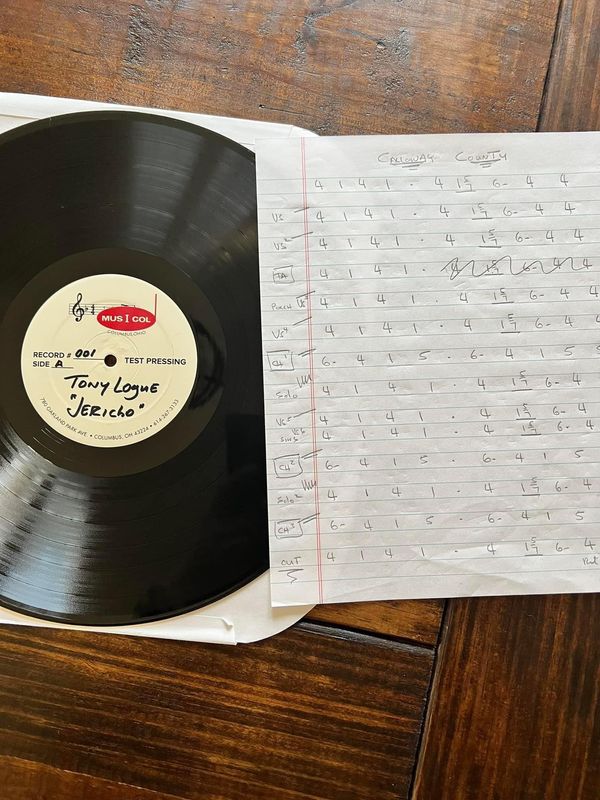 MUS I COL
COLUMBUS, OHIO
RECORD # 001
TEST PRESSING
SIDE A
TONY LOGUE
"JERICHO"
780 OAKLAND PARK AVE • COLUMBUS, OH 43224 • 614-267-3133
CALLOWAY COUNTY
4 1 4 1 · 4 1 5/7 6- 4 4
VS 4 1 4 1 · 4 1 5/7 6- 4 4
VS² 4 1 4 1 · 4 1 5/7 6- 4 4
TA 4 1 4 1 ·
4 1 4 1 · 4 1 5/7 6- 4 4
VS⁴ 4 1 4 1 · 4 1 5/7 6- 4
CH¹ 6- 4 1 5 · 6- 4 1 5 5
SOLO 4 1 4 1 · 4 1 5/7 6- 4
VS⁵ 4 1 4 1 · 4 1 5/7 6- 4
VS⁶ SING 4 1 4 1 · 4 1 5/7 6- 4
CH² 6- 4 1 5 · 6- 4 1 5
SOLO² 4 1 4 1 · 4 1 5/7 6- 4
CH³ 6- 4 1 5 · 6- 4 1 5
OUT 4 1 4 1 · 4 1 5/7 6- 4